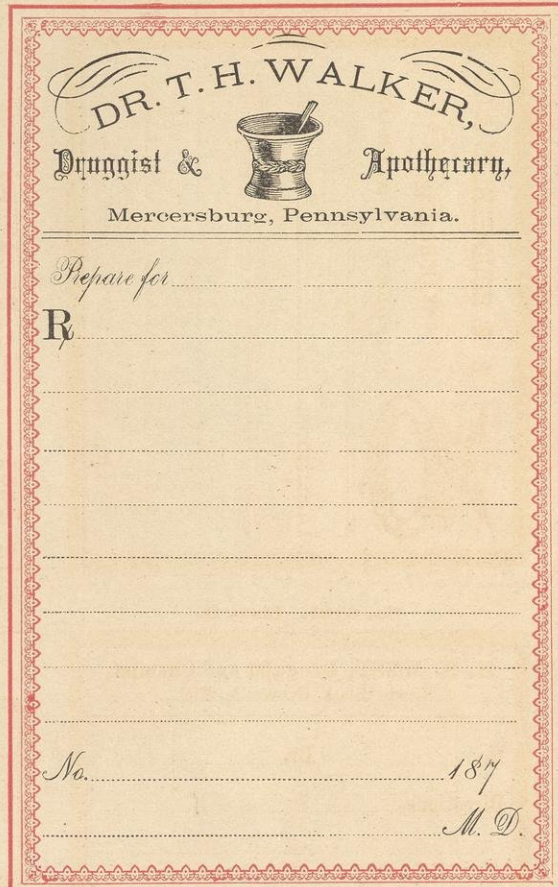 DR. T. H. WALKER,
Druggist & Apothecary,
Mercersburg, Pennsylvania.
Prepare for
℞
No. 187
M. D.